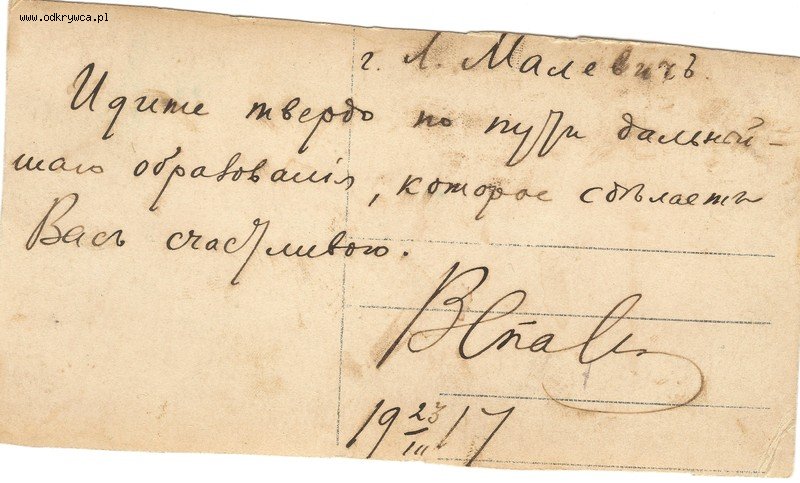 www.odkrywca.pl
г. Л. Малевичъ.
Идите твердо по пути дальнѣй-
шаго образованія, которое сдѣлаетъ
Васъ счастливою.
19 23/III 17